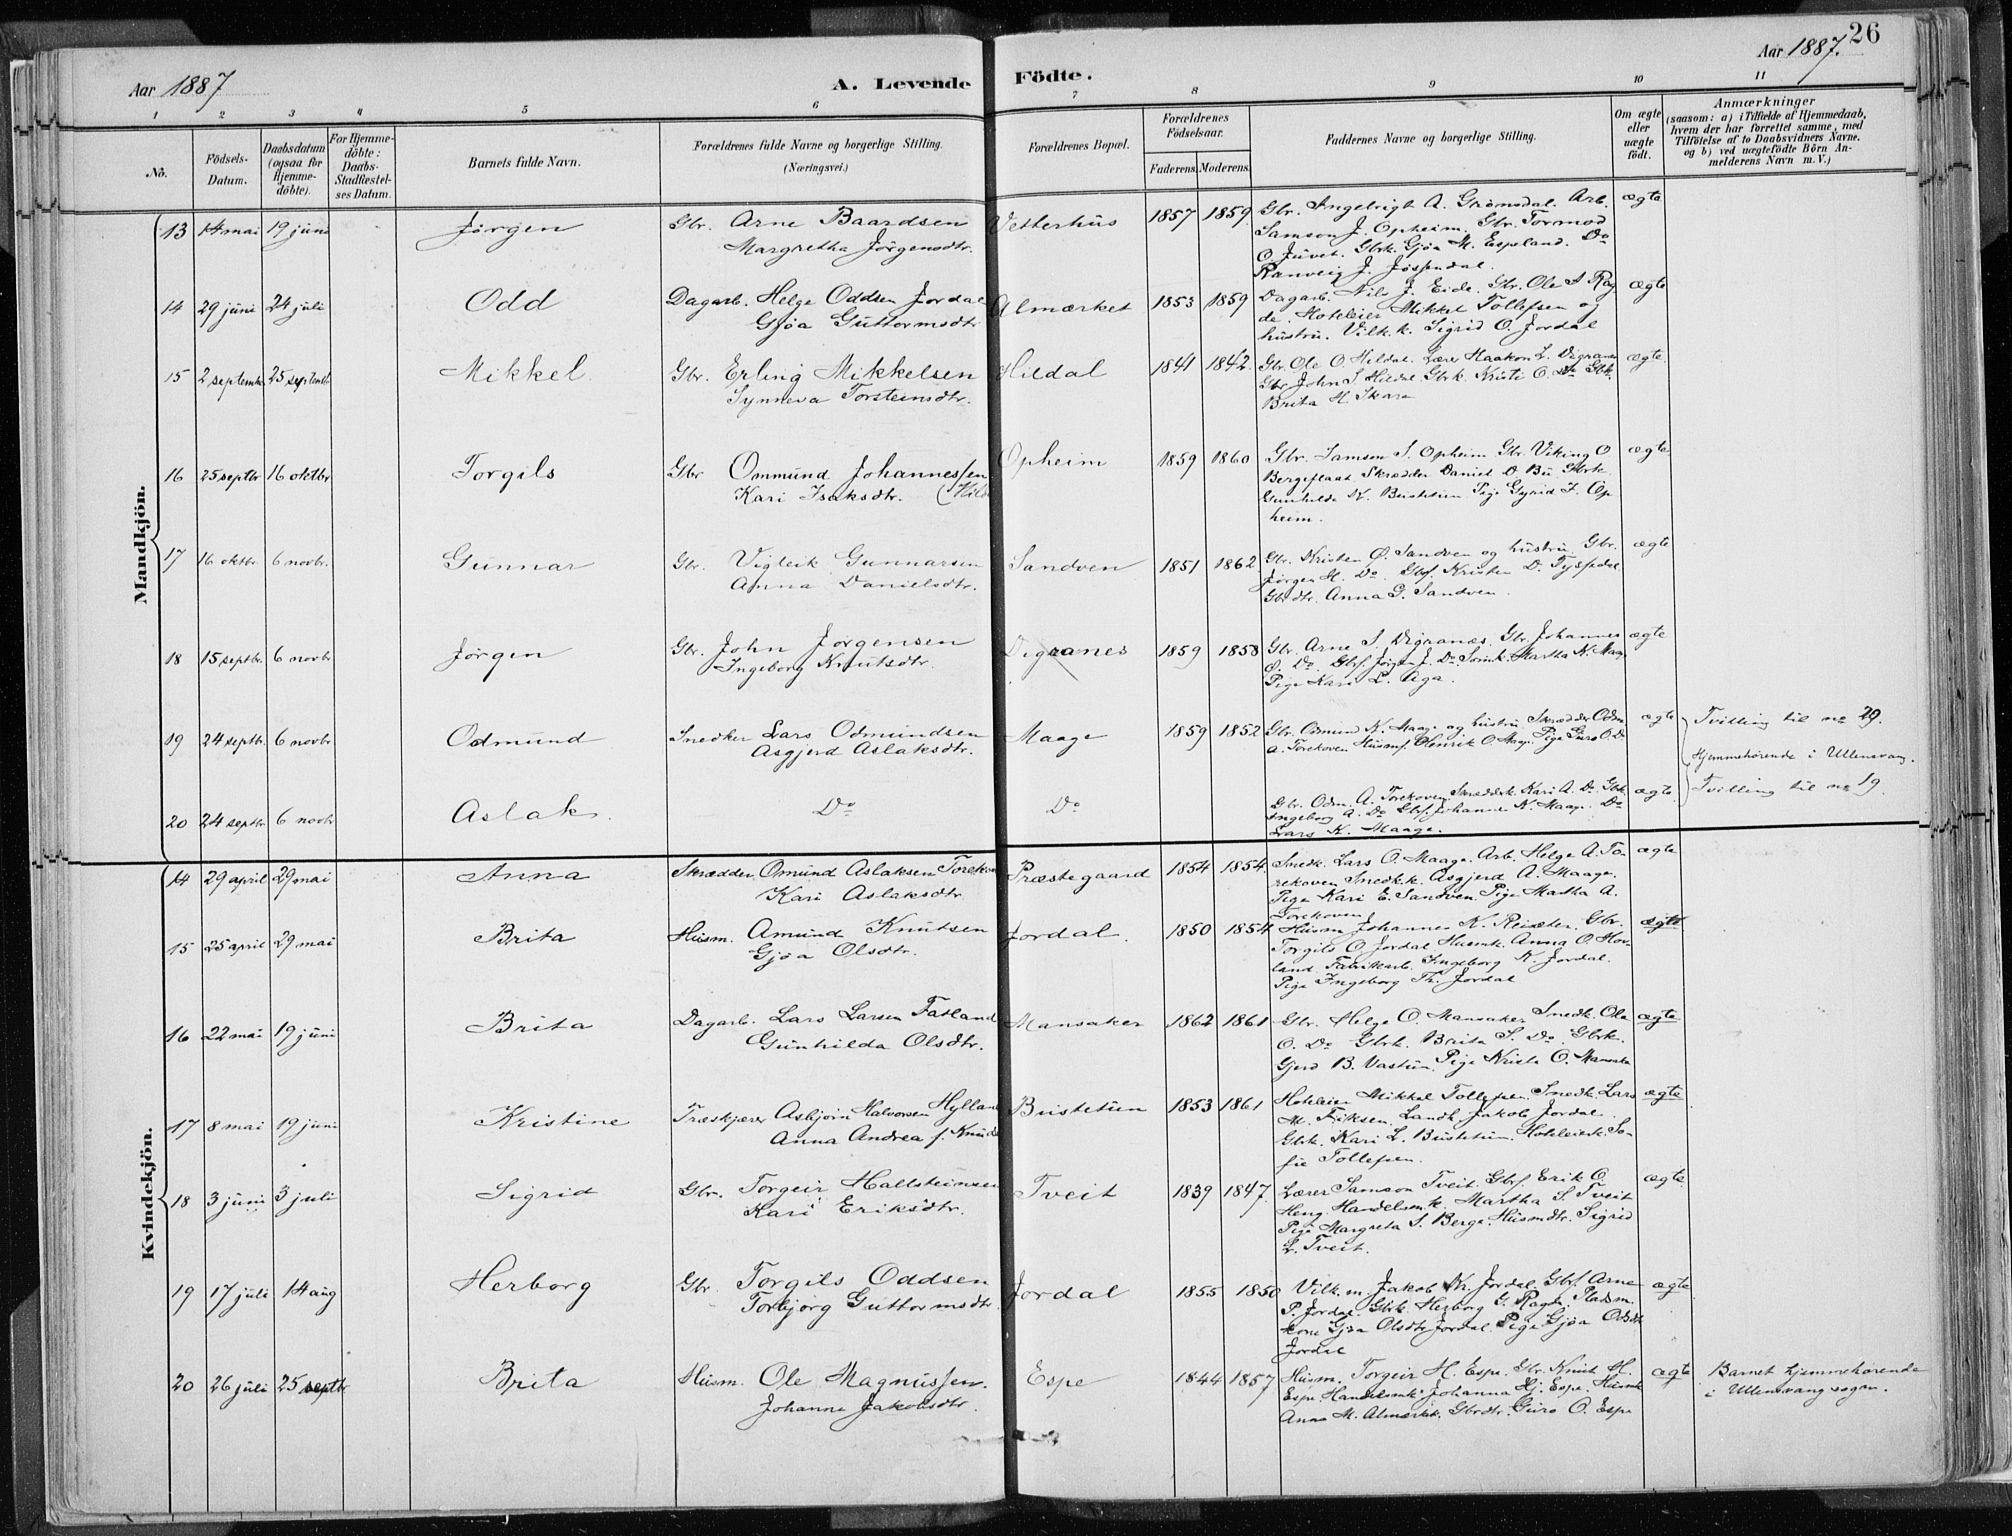 Aar 1887
A. Levende Födte.
Aar 1887.
26
1 2 3 4 5 6 7 8 9 10 11
No.
Födsels-Datum.
Daabsdatum (ogsaa for Hjemmedöbte).
For Hjemmedöbte: Daabs-Stadfæstelses Datum.
Barnets fulde Navn.
Forældrenes fulde Navne og borgerlige Stilling. (Næringsvei.)
Forældrenes Bopæl.
Forældrenes Födselsaar.
Faderens. Moderens.
Faddernes Navne og borgerlige Stilling.
Om ægte eller uægte födt.
Anmærkninger
(saasom: a) i Tilfælde af Hjemmedaab, hvem der har forrettet samme, med Tilföielse af to Daabsvidners Navne. og b) ved uægtefödte Börn Anmelderens Navn m. V.)
Mandkjön.
13 14 mai 19 juni Jörgen Gbr. Arne Baardsen Vetterhus 1857 1859 Gbr. Ingebrigt A. Grönsdal. Arb. ægte
Margretha Jörgensdtr. Samson J. Opheim. Gbr. Tormod
O. Juvet. Gbrk. Gjöa M. Espeland. Do
Ranveig J. Jösendal.
14 29 juni 24 juli Odd Dagarb. Helge Oddsen Jordal Almærket 1853 1859 Dagarb. Nils J. Eide. Gbr. Ole S Rag ægte
Gjöa Guttormsdtr de. Hoteleier Mikkel Tollefsen og
hustru. Vilk.k. Sigrid O. Jordal
15 2 septemb 25 septemb Mikkel. Gbr. Erling Mikkelsen Hildal 1841 1842. Gbr. Ole O Hildal. Lærer Haakon L. Digranes ægte.
Synneva Torsteinsdtr. Gbr. John S. Hildal Gbrk. Kristi O. Do Gbk.
Brita H. Skare
16 25 septbr 16 oktbr Torgils Gbr Ommund Johannessen Opheim 1859 1860 Gbr. Samson S. Opheim Gbr. Viking O ægte
Kari Isaksdtr. Bergeflaat Skrædder Daniel D. Bu Gbrk
Gunhilda N. Bustetun Pige Gyrid I. Op
heim.
17 16 oktbr. 6 novbr. Gunnar Gbr. Vigleik Gunnarsen Sandven 1851 1862 Gbr. Kristen O. Sandven og hustru. Gbr. ægte
Anna Danielsdtr. Jörgen H. Do. Gbf. Kristen D. Tyssedal
Gbrdtr. Anna G. Sandven.
18 15 septbr. 6 novbr Jörgen Gbr. John Jörgensen Digranes 1859 1858 Gbr. Arne S. Digranes. Gbr. Johannes ægte
Ingeborg Knutsdtr. O. Do. Gbf. Jörgen J. Do. Martha K. Maage
Pige Kari L. Aga.
19 24 septbr. 6 novbr Odmund Snedker Lars Odmundsen Maage 1859 1852 Gbr. Odmund K. Maage og hustru. Skrædder Odm. ægte Tvilling til no 20.
Asgjerd Aslaksdtr. A. Torekoven Husmf. Henrik O. Maage. Pige Guro O. Do
Hjemmehörende i Ullensvang.
20 24 septbr 6 novbr Aslak. Do Do Gbr. Odm. A. Torekoven. Skrædderk. Kari A. Do. Gbk. ægte Tvilling til no 19.
Ingeborg A. Do Gbf. Johannes K. Maage. Do
Lars K. Maage.
Kvindekjön.
14 29 april 29 mai Anna Skrædder Omund Aslaksen Torekov Præstegaard 1854 1854. Snedk. Lars O. Maage. Arb. Helge A. To- ægte
Kari Aslaksdtr rekoven Snedk.k. Asgjerd A. Maage.
Pige Kari E. Sandven Pige Martha A.
Torekoven
15 25 april 29 mai Brita Husm. Amund Knutsen Jordal. 1850 1854. Husm Johannes K. Reisæter. Gbr. ægte
Gjöa Olsdtr. Torgils O. Jordal Husmk. Anna O. Hov-
land. Fabrikarb. Ingeborg K. Jordal.
Pige Ingeborg Th. Jordal
16 22 mai 19 juni Brita Dagarb. Lars Larsen Fatland Mansaker 1862 1861 Gbr. Helge O. Mansaker Snedk. Ole ægte
Gunhilda Olsdtr. O. Do Gbrk. Brita S. Do. Gbrk.
Gjerd B. Vastun. Pige Krista O. Mansaker
17 8 mai 19 juni Kristine Træskjærer Asbjörn Halvorsen Hylland Bustetun 1853 1861 Hoteleier Mikkel Tollefsen, Snedk. Lars ægte
Anna Andrea f. Knuds M. Eriksen. Landh. Jakob Jordal.
Gbrk. Kari L. Bustetun. Hoteleierk. So-
fie Tollefsen.
18 3 juni 3 juli Sigrid Gbr. Torgeir Hallsteinsen Tveit 1839 1847. Lærer Samson Tveit. Gbf. Erik O. ægte
Kari Eriksdtr. Heng. Handelsm.k. Martha S. Tveit
Pige Margreta S. Berge. Husmdtr. Sigrid
L. Tveit.
19 17 juli 14 aug Herborg Gbr. Torgils Oddsen Jordal 1855 1850 Vilk.m Jakob Kr. Jordal. Gbf. Arne ægte
Torbjörg Guttormsdtr. P. Jordal. Gbrk. Herborg G. Ragde. Pladsm.
kone Gjöa Olsdtr Jordal. Pige Gjöa Oddsdtr
Jordal
20 26 juli 25 septbr. Brita Husm. Ole Magnussen. Espe 1844 1857 Husm. Torgeir H. Espe. Gbr. Knut H. ægte Barnet hjemmehörende
Johanne Jakobsdtr. Espe. Handelsmk Johanna Hj. Espe. Husmk i Ullensvang sogn.
Anna M. Almerket. Gbrdtr. Guro O. Espe